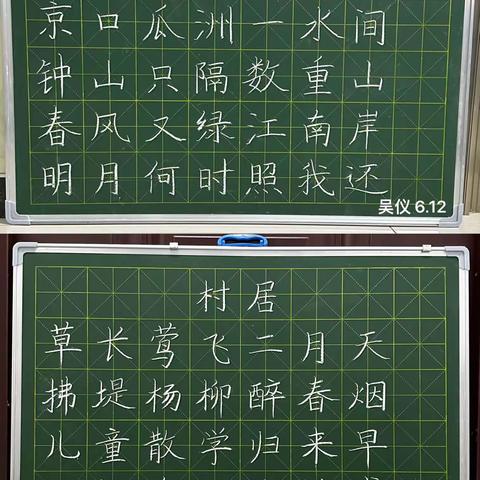 京口瓜洲一水间
钟山只隔数重山
春风又绿江南岸
明月何时照我还
吴仪 6.12
村居
草长莺飞二月天
拂堤杨柳醉春烟
儿童散学归来早